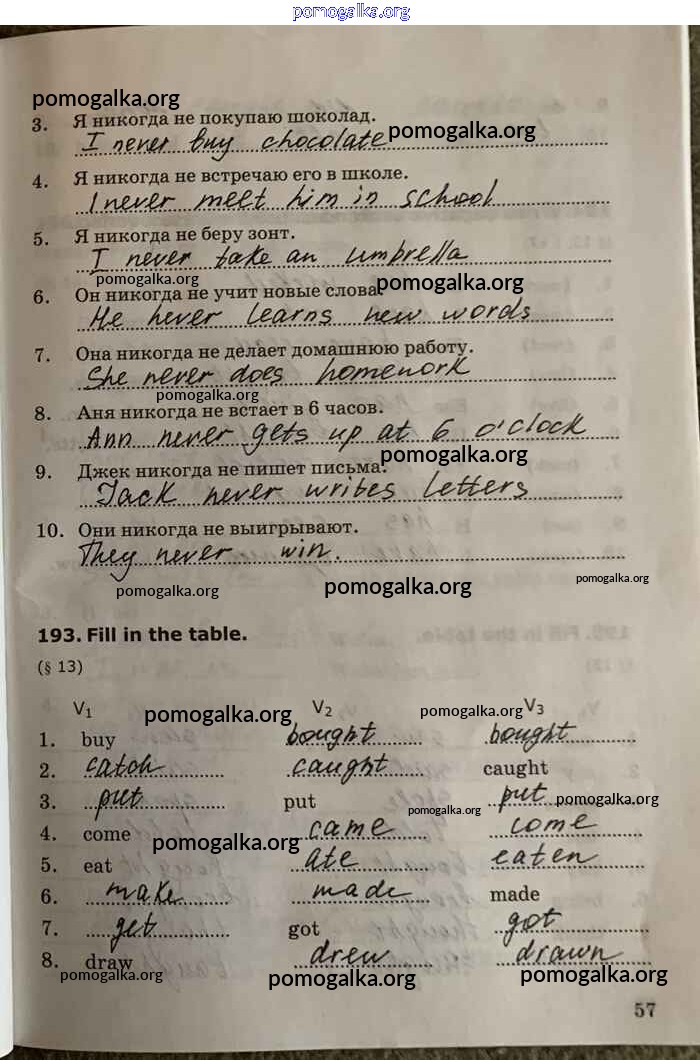 pomogalka.org
pomogalka.org
3. Я никогда не покупаю шоколад.
I never buy chocolate
pomogalka.org
4. Я никогда не встречаю его в школе.
I never meet him in school
5. Я никогда не беру зонт.
I never take an umbrella
pomogalka.org
pomogalka.org
6. Он никогда не учит новые слова.
He never learns new words
7. Она никогда не делает домашнюю работу.
She never does homework
pomogalka.org
8. Аня никогда не встает в 6 часов.
Ann never gets up at 6 o'clock
pomogalka.org
9. Джек никогда не пишет письма.
Jack never writes letters
10. Они никогда не выигрывают.
They never win.
pomogalka.org
pomogalka.org
pomogalka.org
193. Fill in the table.
(§ 13)
V1 V2 V3
pomogalka.org
pomogalka.org
1. buy bought bought
2. catch caught caught
3. put put put
pomogalka.org
pomogalka.org
4. come came come
pomogalka.org
5. eat ate eaten
6. make made made
7. get got got
8. draw drew drawn
pomogalka.org
pomogalka.org
pomogalka.org
57